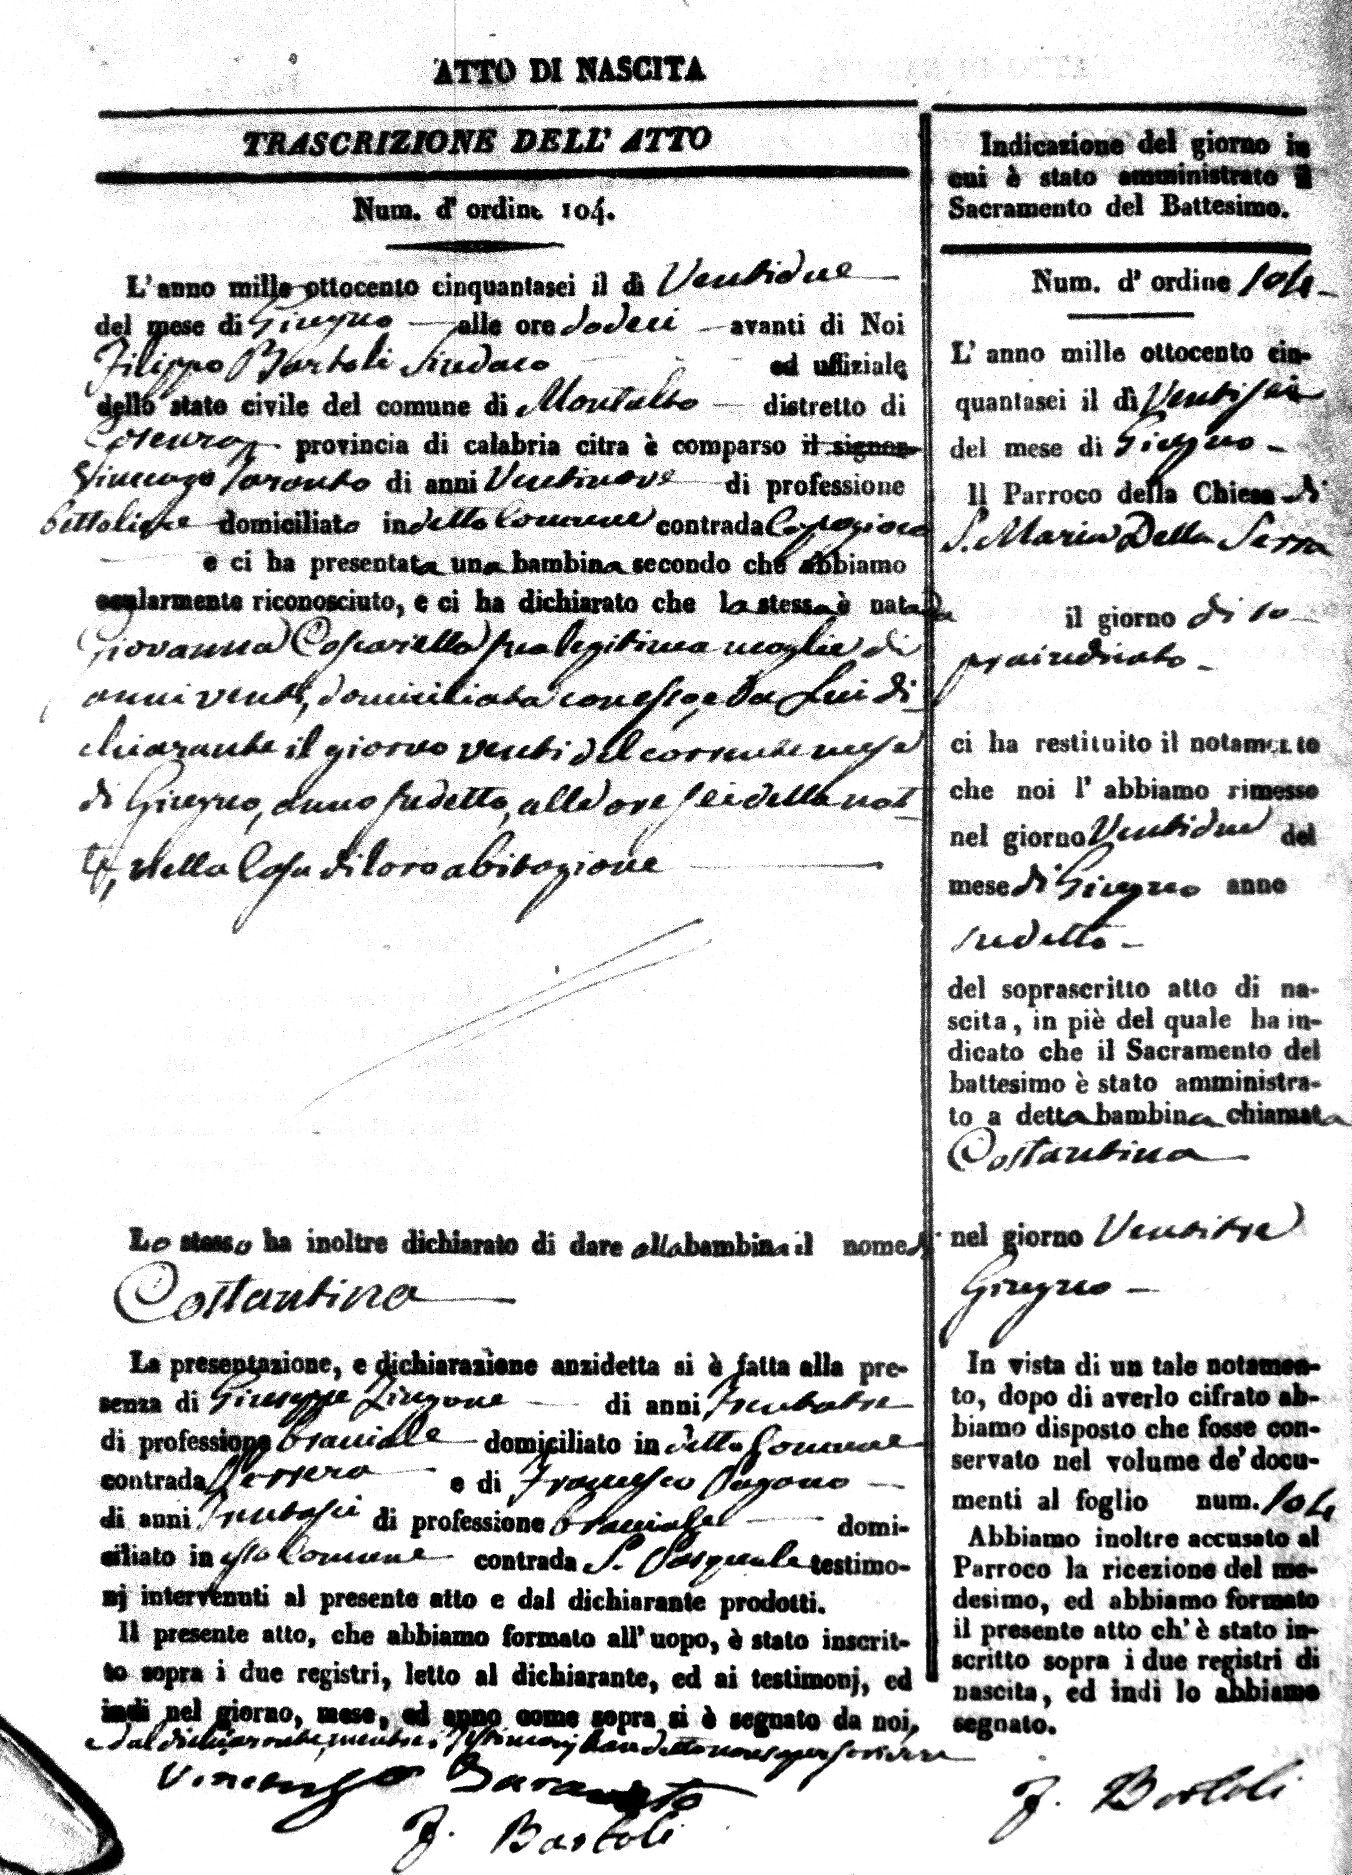 ATTO DI NASCITA
TRASCRIZIONE DELL' ATTO
Num. d' ordine 104.
L' anno mille ottocento cinquantasei il dì Ventidue
del mese di Giugno alle ore dodeci avanti di Noi
Filippo Bartoli Sindaco ed uffiziale
dello stato civile del comune di Montalto distretto di
Cosenza provincia di calabria citra è comparso il signor
Vincenzo Taranto di anni Ventinove di professione
bettoliere domiciliato in detto Comune contrada
e ci ha presentata una bambina secondo che abbiamo
ocularmente riconosciuto, e ci ha dichiarato che la stessa è nata da
Giovanna Coscarella sua legitima moglie di
anni venti, domiciliata con esso, e da Lui di
chiarante il giorno venti del corrente mese
di Giugno, anno sudetto, alle ore sei della not
te, nella Casa di loro abitazione
Lo stesso ha inoltre dichiarato di dare alla bambina il nome di
Costantina
La presentazione, e dichiarazione anzidetta si è fatta alla pre-
senza di Giuseppe Zingone di anni Trentatre
di professione braciale domiciliato in detto Comune
contrada e di Francesco Pagano
di anni Trentasei di professione braciale domi-
ciliato in esso Comune contrada S. Pasquale testimo-
nj intervenuti al presente atto e dal dichiarante prodotti.
Il presente atto, che abbiamo formato all' uopo, è stato inscrit-
to sopra i due registri, letto al dichiarante, ed ai testimonj, ed
indi nel giorno, mese, ed anno come sopra si è segnato da noi,
e dal dichiarante, mentre i Testimonj han detto non saper scrivere
Vincenzo Taranto
F. Bartoli
Indicazione del giorno in
cui è stato amministrato il
Sacramento del Battesimo.
Num. d' ordine 104
L' anno mille ottocento cin-
quantasei il dì Ventisei
del mese di Giugno
Il Parroco della Chiesa di
S. Maria Della Serra
il giorno di so
praindicato
ci ha restituito il notamento
che noi l' abbiamo rimesso
nel giorno Ventidue del
mese di Giugno anno
sudetto
del soprascritto atto di na-
scita, in piè del quale ha in-
dicato che il Sacramento del
battesimo è stato amministra-
to a detta bambina chiamata
Costantina
nel giorno Ventitre
Giugno
In vista di un tale notamen-
to, dopo di averlo cifrato ab-
biamo disposto che fosse con-
servato nel volume de' docu-
menti al foglio num. 104
Abbiamo inoltre accusato al
Parroco la ricezione del me-
desimo, ed abbiamo formato
il presente atto ch' è stato in-
scritto sopra i due registri di
nascita, ed indi lo abbiamo
segnato.
F. Bartoli